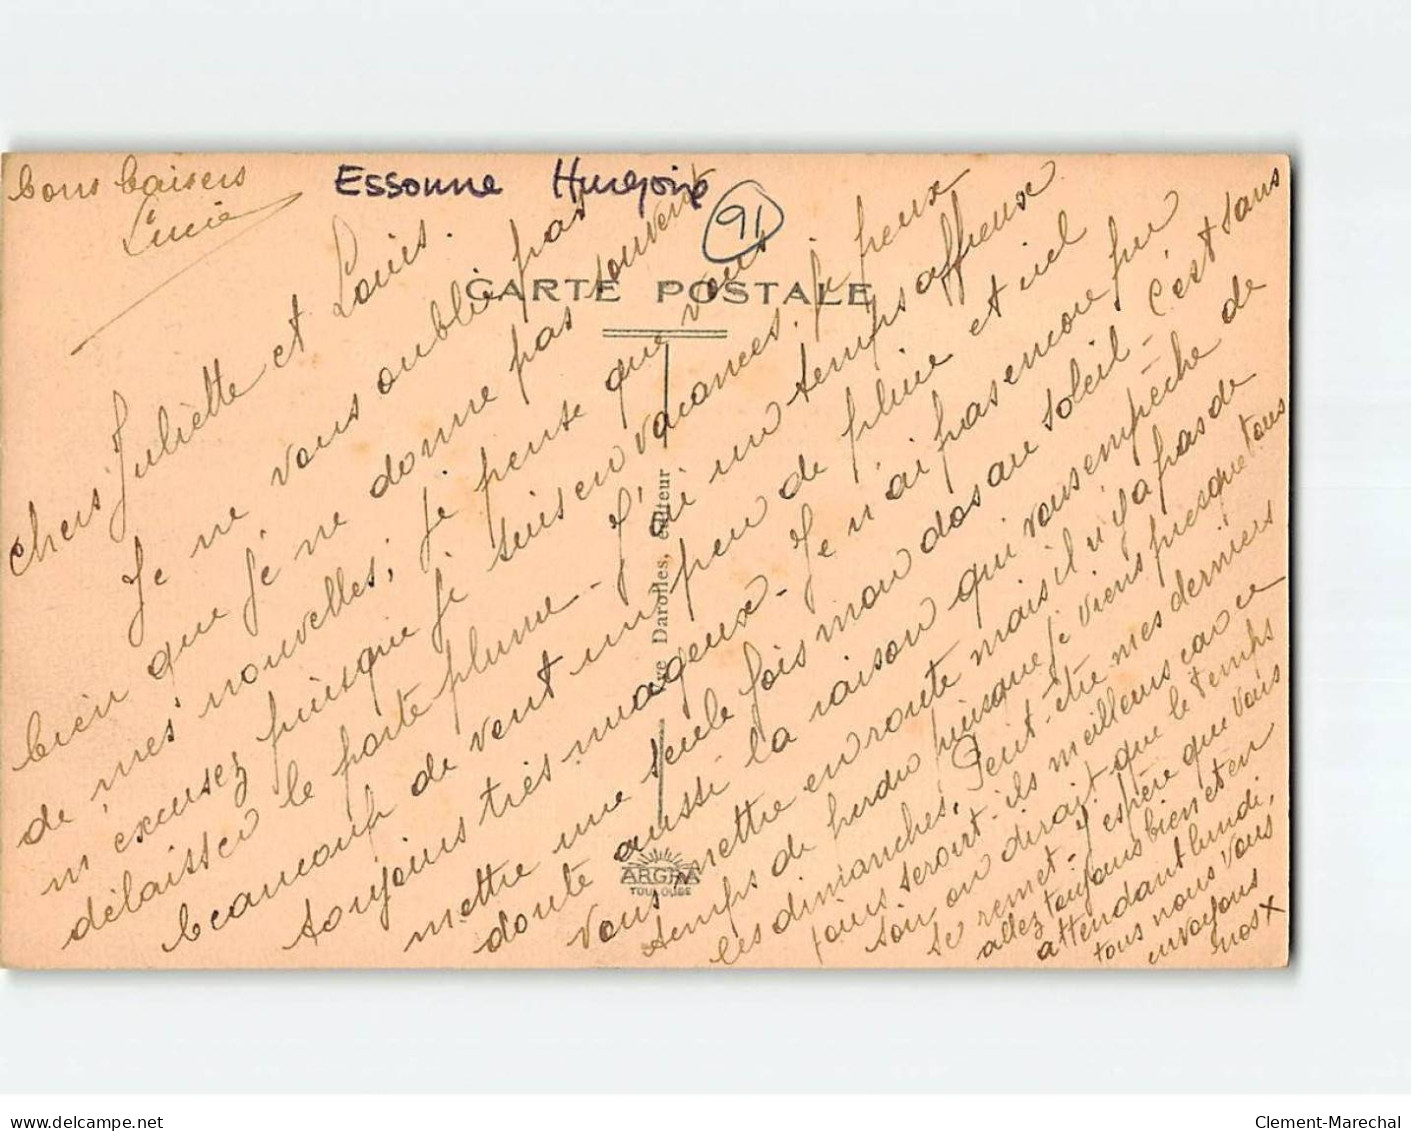 Chers Juliètte et Louis.
Je ne vous oublie pas
bien que je ne donne pas souvent
de mes nouvelles, je pense que vous
m'excusez puisque je suis en vacances. je peux
délaisser le porte plume - J'ai un temps affreux
beaucoup de vent un peu de pluie et ciel
toujours très nuageux - Je n'ai pas encore pu
mettre une seule fois mon dos au soleil - C'est sans
doute aussi la raison qui vous empêche de
vous mettre en route mais il n'y a pas de
temps de perdu puisque je viens presque tous
les dimanches. Peut-être mes derniers
jours seront-ils meilleurs car ce
soir on dirait que le temps
se remet - J'espère que vous
allez toujours bien et en
attendant lundi,
tous nous vous
envoyons
nos x
bons baisers
Lucie
Essonne Hurepoix
91
CARTE POSTALE
Darolles, éditeur
ARGRA
TOULOUSE
delcampe.net
Clement-Marechal